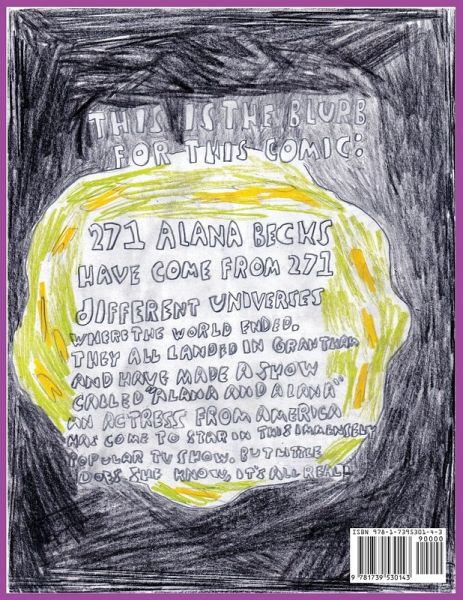 THIS IS THE BLURB
FOR THIS COMIC:
271 ALANA BECKS
HAVE COME FROM 271
DIFFERENT UNIVERSES
WHERE THE WORLD ENDED.
THEY ALL LANDED IN GRANTHAM
AND HAVE MADE A SHOW
CALLED "ALANA AND ALANA"
AN ACTRESS FROM AMERICA
HAS COME TO STAR IN THIS IMMENSELY
POPULAR TV SHOW. BUT LITTLE
DOES SHE KNOW, IT'S ALL REAL!
ISBN 978-1-7395301-4-3
90000
9 781739 530143